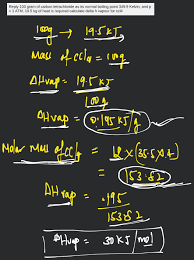 Reply 100 gram of carbon tetrachloride as its normal boiling point 349.9 Kelvin, and p
= 1 ATM, 19.5 kg of heat is required calculate delta h vapour for ccl4
100g → 19.5 KJ
Mass of CCl4 = 100g
ΔHvap = 19.5 KJ
100g
ΔHvap = 0.195 KJ/g
Molar Mass of CCl4 = 12 × (35.5 × 4
= 153.82
ΔHvap = .195
153.82
ΔHvap = 30 KJ/mol